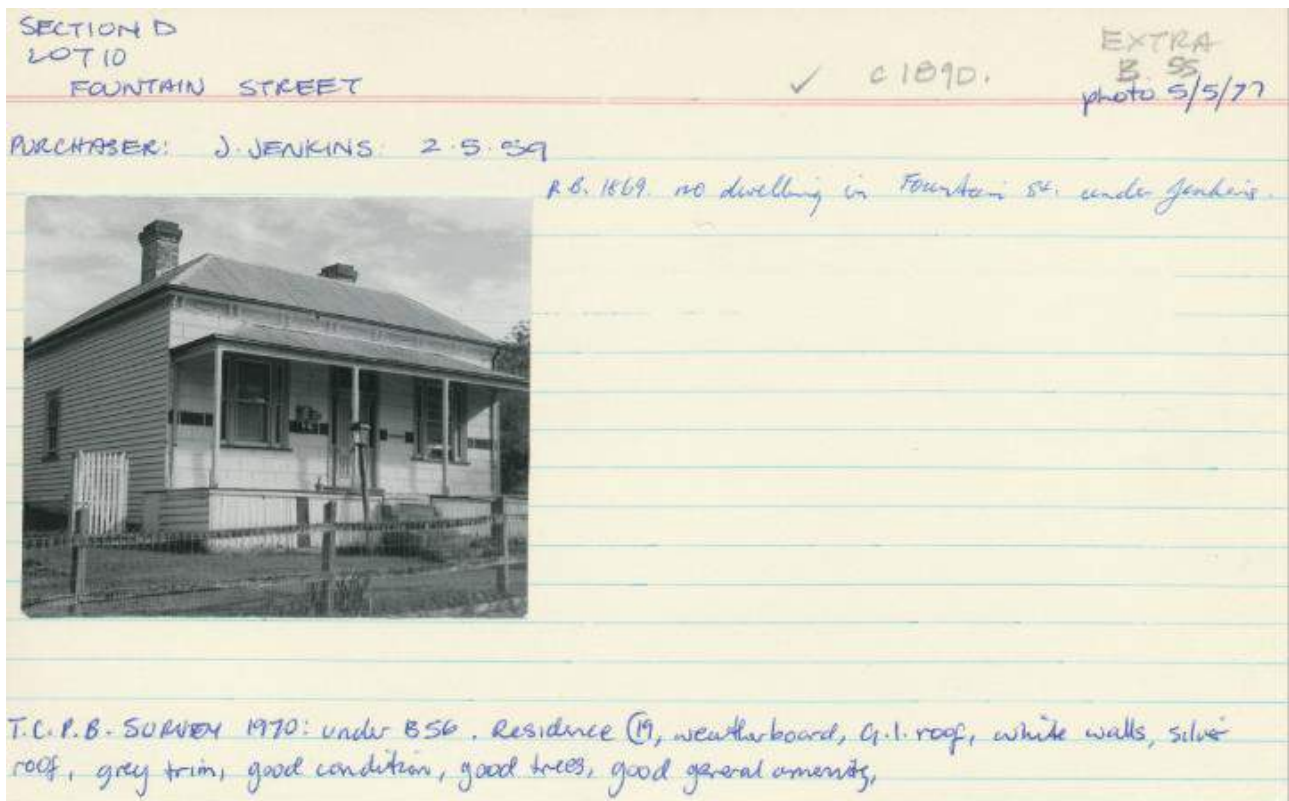 SECTION D
LOT 10
FOUNTAIN STREET
✓ c 1890.
EXTRA
B. 55
photo 5/5/77
PURCHASER: J. JENKINS: 2.5.59
R.B. 1869. no dwelling in Fountain St. under Jenkins.
T.C.P.B. SURVEY 1970: under B56. Residence (19, weatherboard, G.I. roof, white walls, silver
roof, grey trim, good condition, good trees, good general amenity,